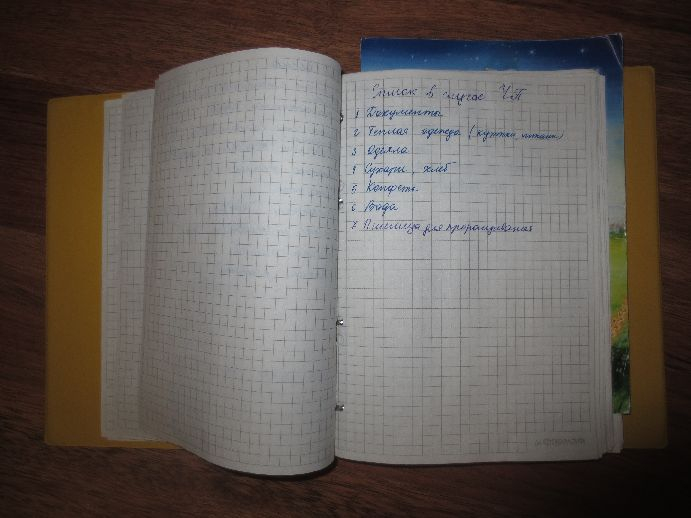 Список в случае ЧП
1 Документы
2 Теплая одежда (куртки, штаны)
3 Одеяла
4 Сухари, хлеб
5 Конфеты
6 Вода
7 Пшеница для проращивания